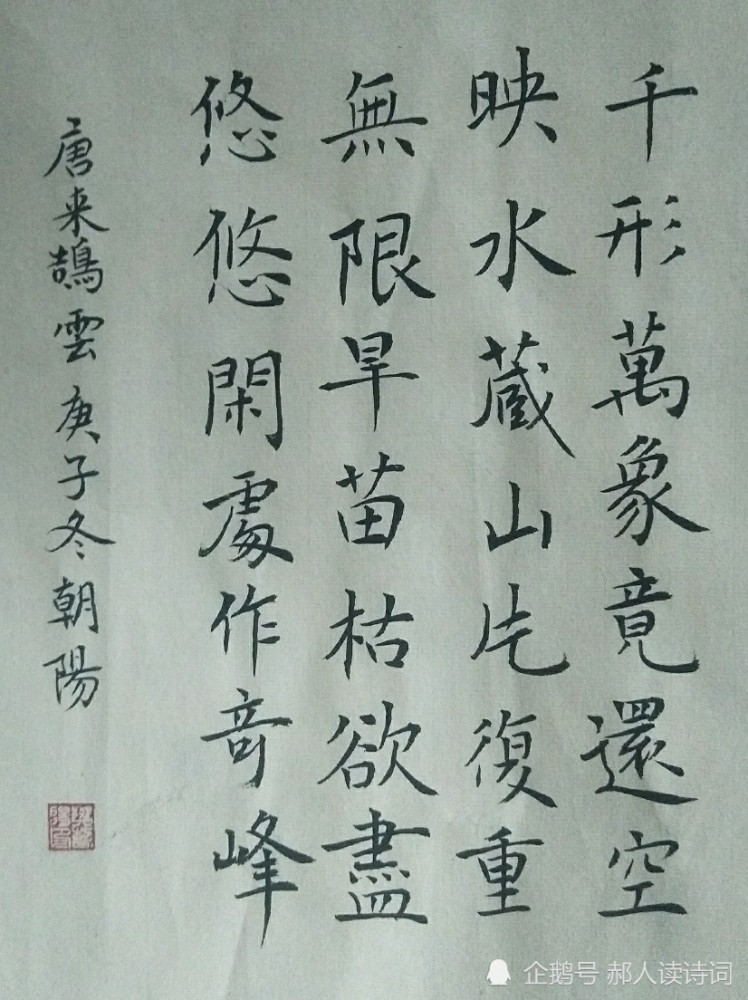 千形萬象竟還空
映水蔵山片復重
無限旱苗枯欲盡
悠悠閑處作奇峰
唐来鵠雲庚子冬朝陽
企鹅号 郝人读诗词